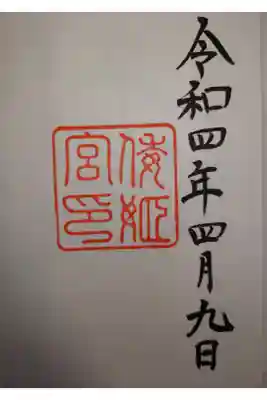 令和四年四月九日
倭姫
宮印